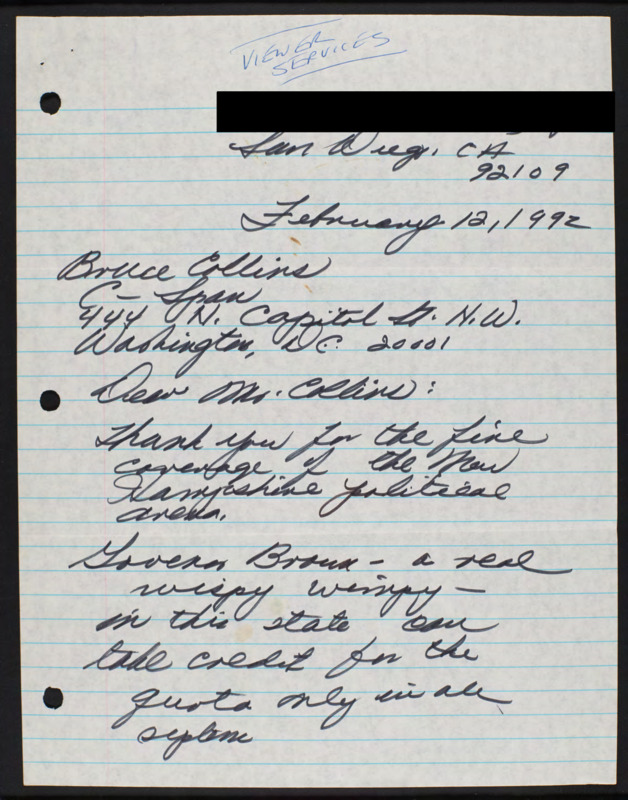 VIEWER
SERVICES
San Diego, CA
92109
February 12, 1992
Bruce Collins
C-Span
444 N. Capitol St. N.W.
Washington, DC 20001
Dear Mr. Collins:
Thank you for the fine
coverage of the New
Hampshire political
arena.
Governor Brown - a real
wispy wimpy -
in this state can
take credit for the
quota only in all